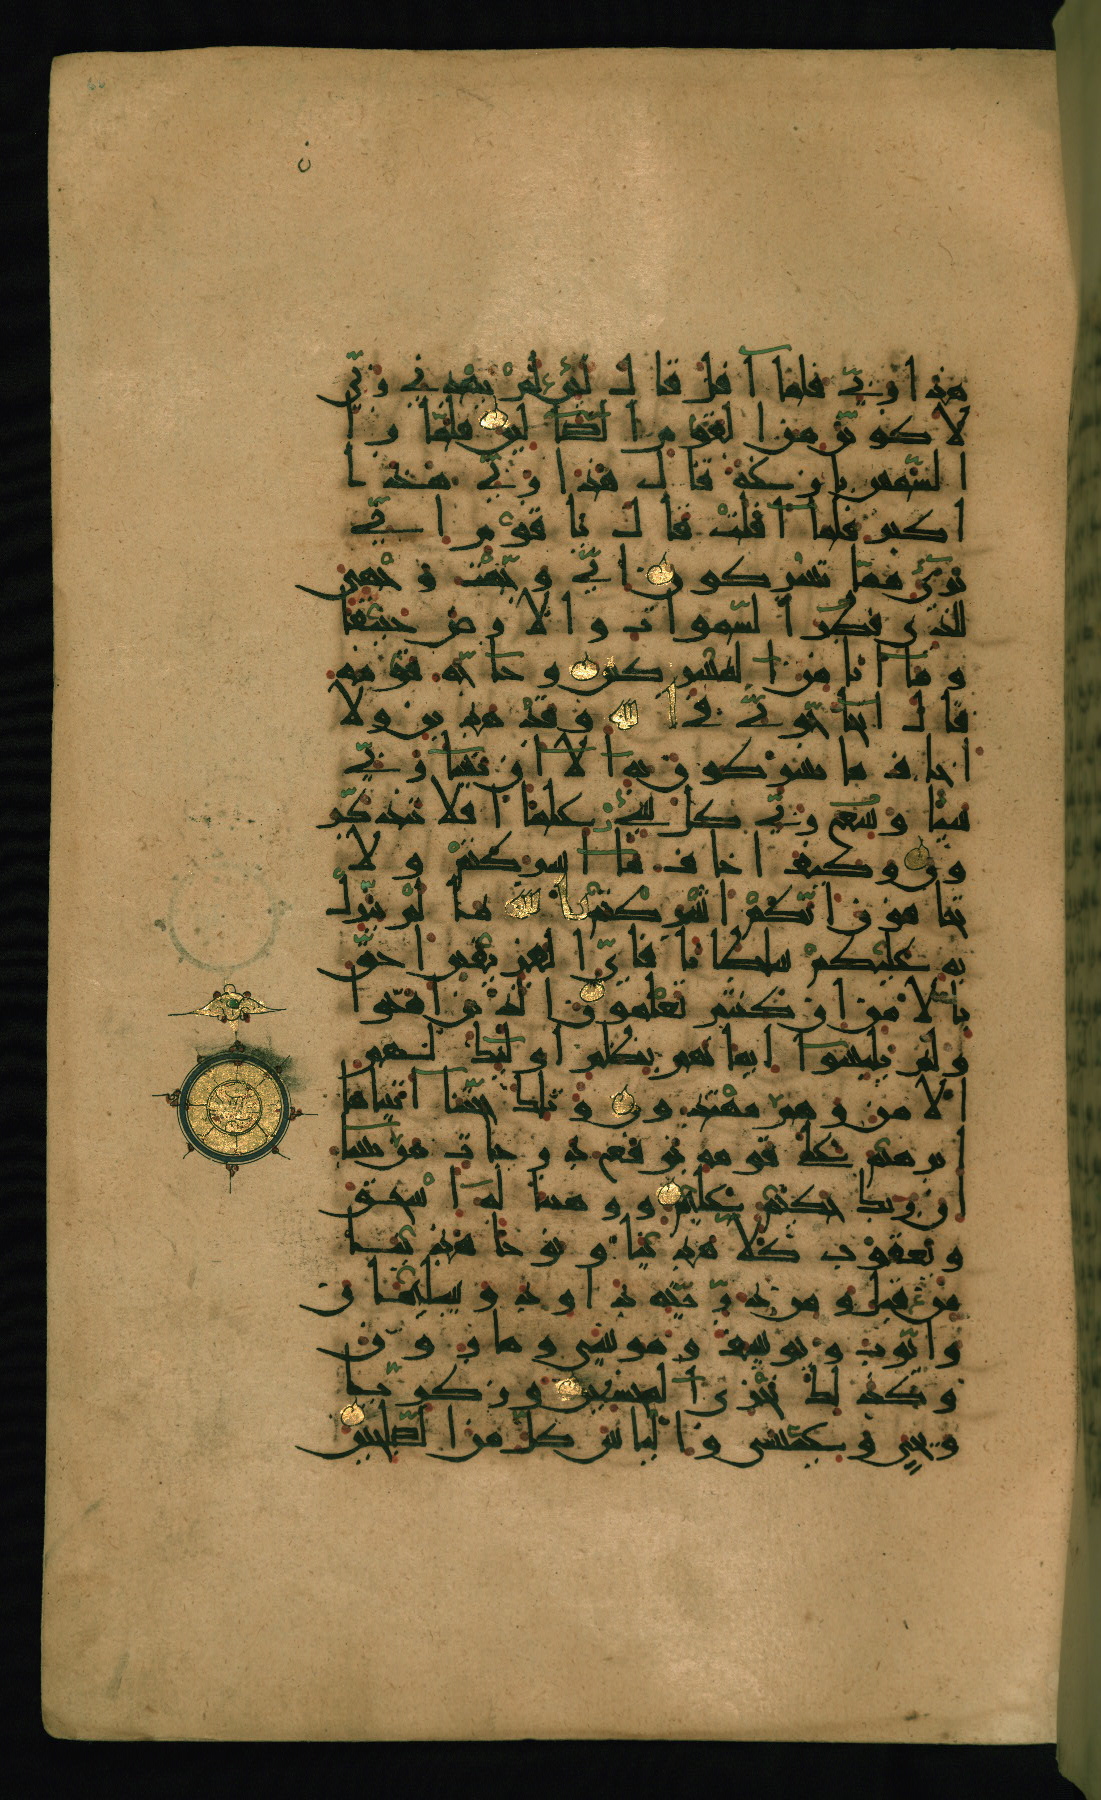 هذا ربي فلما أفل قال لئن لم يهدني ربي
لأكونن من القوم الضالين فلما را
الشمس بازغة قال هذا ربي هذا
أكبر فلما أفلت قال يا قوم إني
بريء مما تشركون إني وجهت وجهي
للذي فطر السموات والأرض حنيفا
وما أنا من المشركين وحاجه قومه
قال أتحاجوني في الله وقد هدين ولا
أخاف ما تشركون به إلا أن يشاء ربي
شيئا وسع ربي كل شيء علما أفلا تتذكر
ون وكيف أخاف ما أشركتم ولا
تخافون أنكم أشركتم بالله ما لم ينزل
به عليكم سلطانا فأي الفريقين أحق
بالأمن إن كنتم تعلمون الذين آمنوا
ولم يلبسوا إيمانهم بظلم أولئك لهم
الأمن وهم مهتدون وتلك حجتنا آتيناها
إبرهيم على قومه نرفع درجات من نشاء
إن ربك حكيم عليم ووهبنا له إسحق
ويعقوب كلا هدينا ونوحا هدينا
من قبل ومن ذريته داود وسليمان
وأيوب ويوسف وموسى وهارون
وكذلك نجزي المحسنين وزكريا
ويحيى وعيسى وإلياس كل من الصالحين